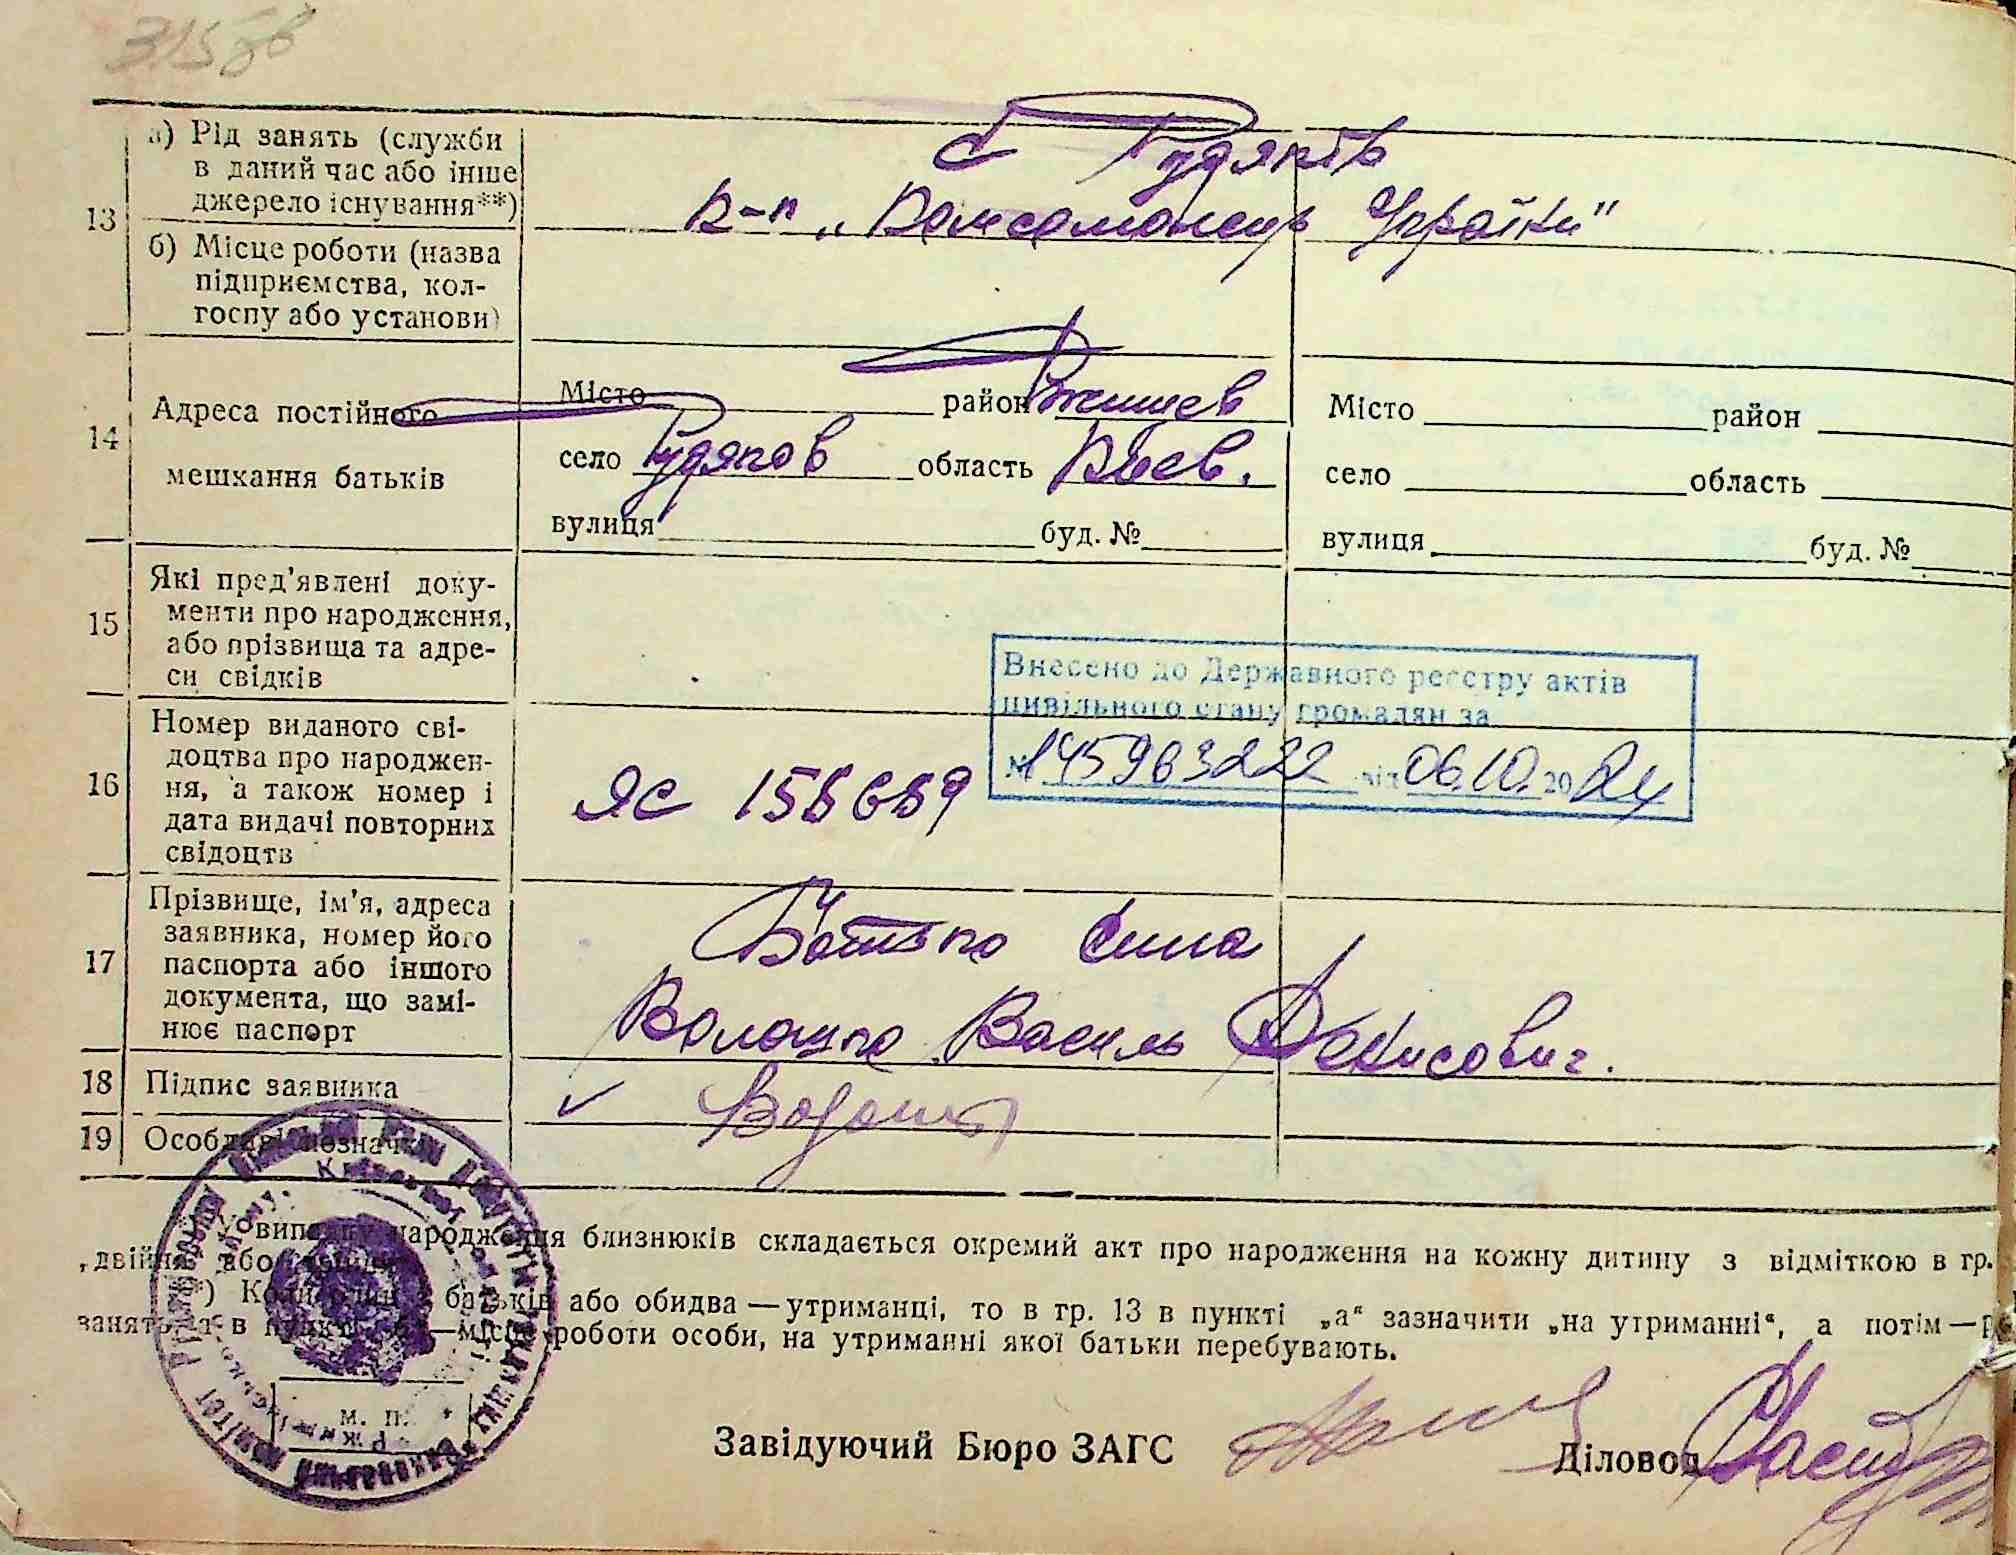 315 зв
а) Рід занять (служби
в даний час або інше
джерело існування**)
с Гудяків
13
к-п „Комсомолець України"
б) Місце роботи (назва
підприємства, кол-
госпу або установи)
14
Адреса постійного
мешкання батьків
Місто район Ржищев
село Гудяков область Киев.
вулиця буд. №
Місто район
село область
вулиця буд. №
15
Які пред'явлені доку-
менти про народження,
або прізвища та адре-
си свідків
Внесено до Державного реєстру актів
цивільного стану громадян за
№ 145963222 від 06.10.2024
16
Номер виданого сві-
доцтва про народжен-
ня, а також номер і
дата видачі повторних
свідоцтв
ЯС 158689
17
Прізвище, ім'я, адреса
заявника, номер його
паспорта або іншого
документа, що замі-
нює паспорт
Батько сина
Волошко Василь Денисович.
18 Підпис заявника
19 Особливі позначки
У випадку народження близнюків складається окремий акт про народження на кожну дитину з відміткою в гр.
„двійня" або
*) Коли один з батьків або обидва — утриманці, то в гр. 13 в пункті „а" зазначити „на утриманні", а потім —
занять, а в пункті „б" — місце роботи особи, на утриманні якої батьки перебувають.
М. П.
Завідуючий Бюро ЗАГС
Діловод